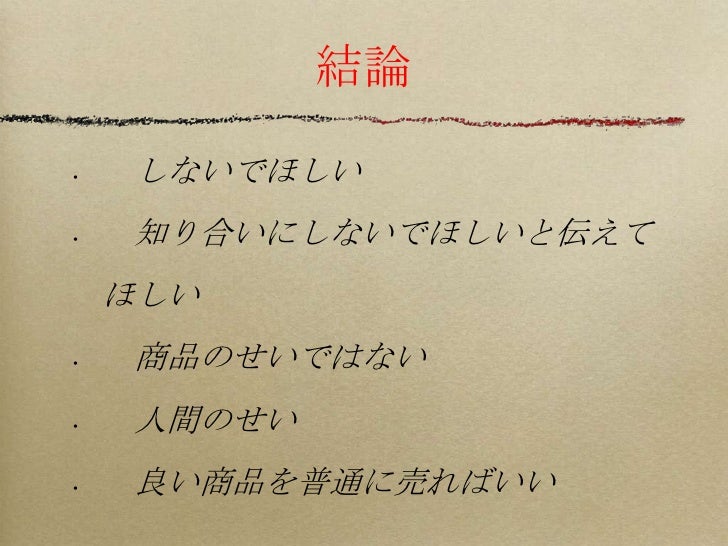 結論
・ しないでほしい
・ 知り合いにしないでほしいと伝えて
ほしい
・ 商品のせいではない
・ 人間のせい
・ 良い商品を普通に売ればいい